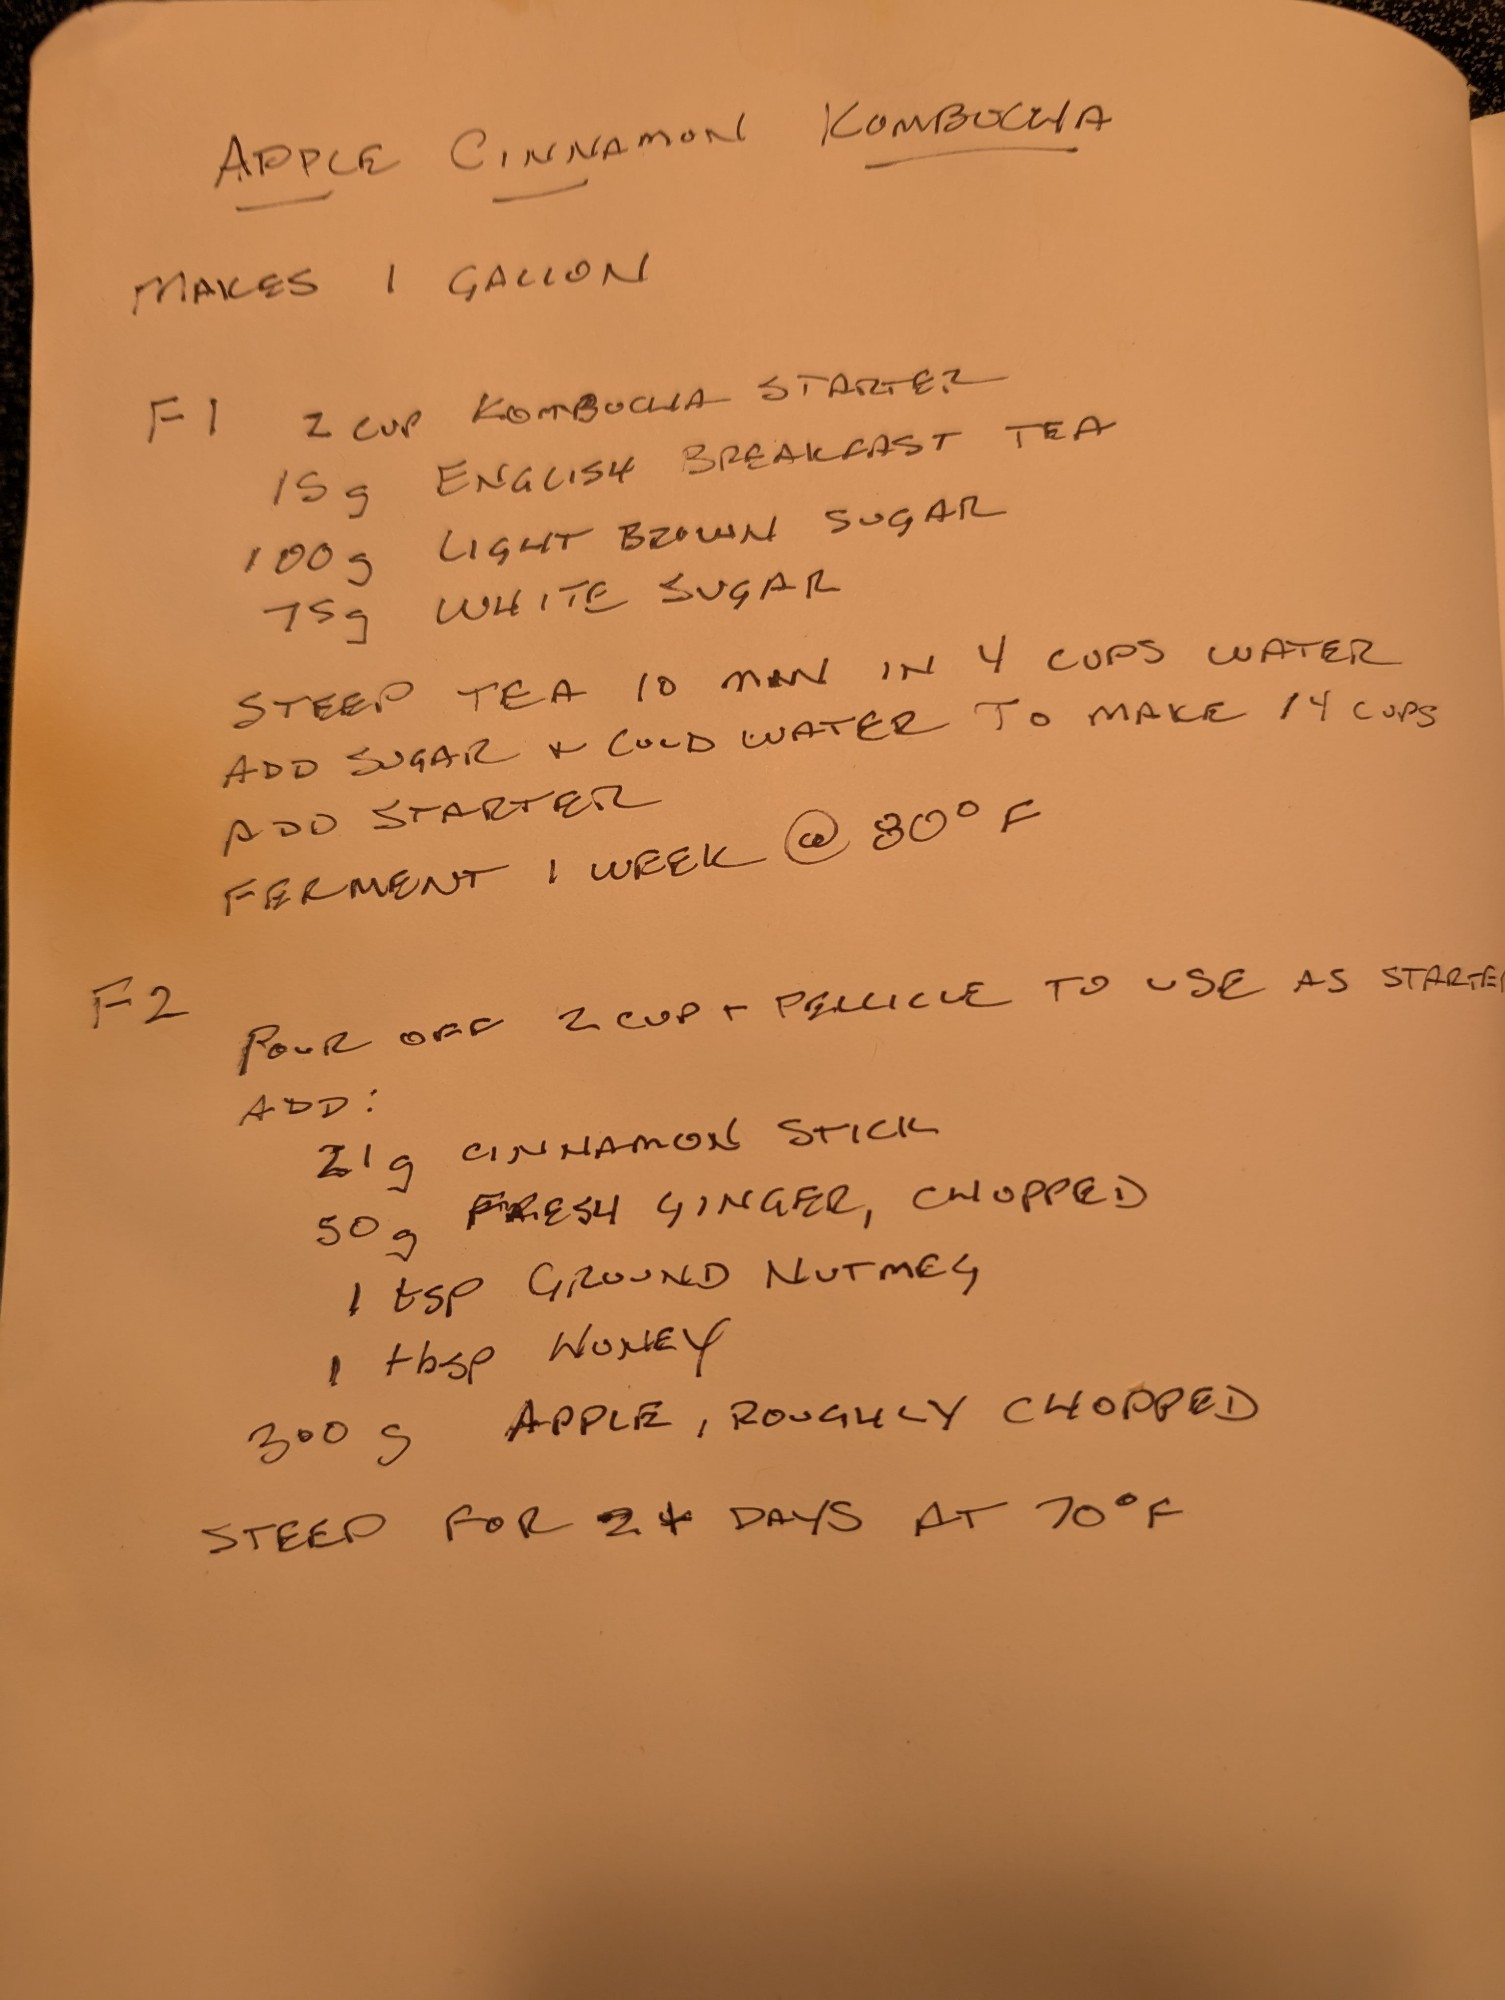 APPLE CINNAMON KOMBUCHA
MAKES 1 GALLON
F1 2 CUP KOMBUCHA STARTER
15g ENGLISH BREAKFAST TEA
100g LIGHT BROWN SUGAR
75g WHITE SUGAR
STEEP TEA 10 MIN IN 4 CUPS WATER
ADD SUGAR + COLD WATER TO MAKE 14 CUPS
ADD STARTER
FERMENT 1 WEEK @ 80°F
F2
POUR OFF 2 CUP + PELLICLE TO USE AS STARTER
ADD:
21g CINNAMON STICK
50g FRESH GINGER, CHOPPED
1 tsp GROUND NUTMEG
1 tbsp HONEY
300g APPLE, ROUGHLY CHOPPED
STEEP FOR 2+ DAYS AT 70°F